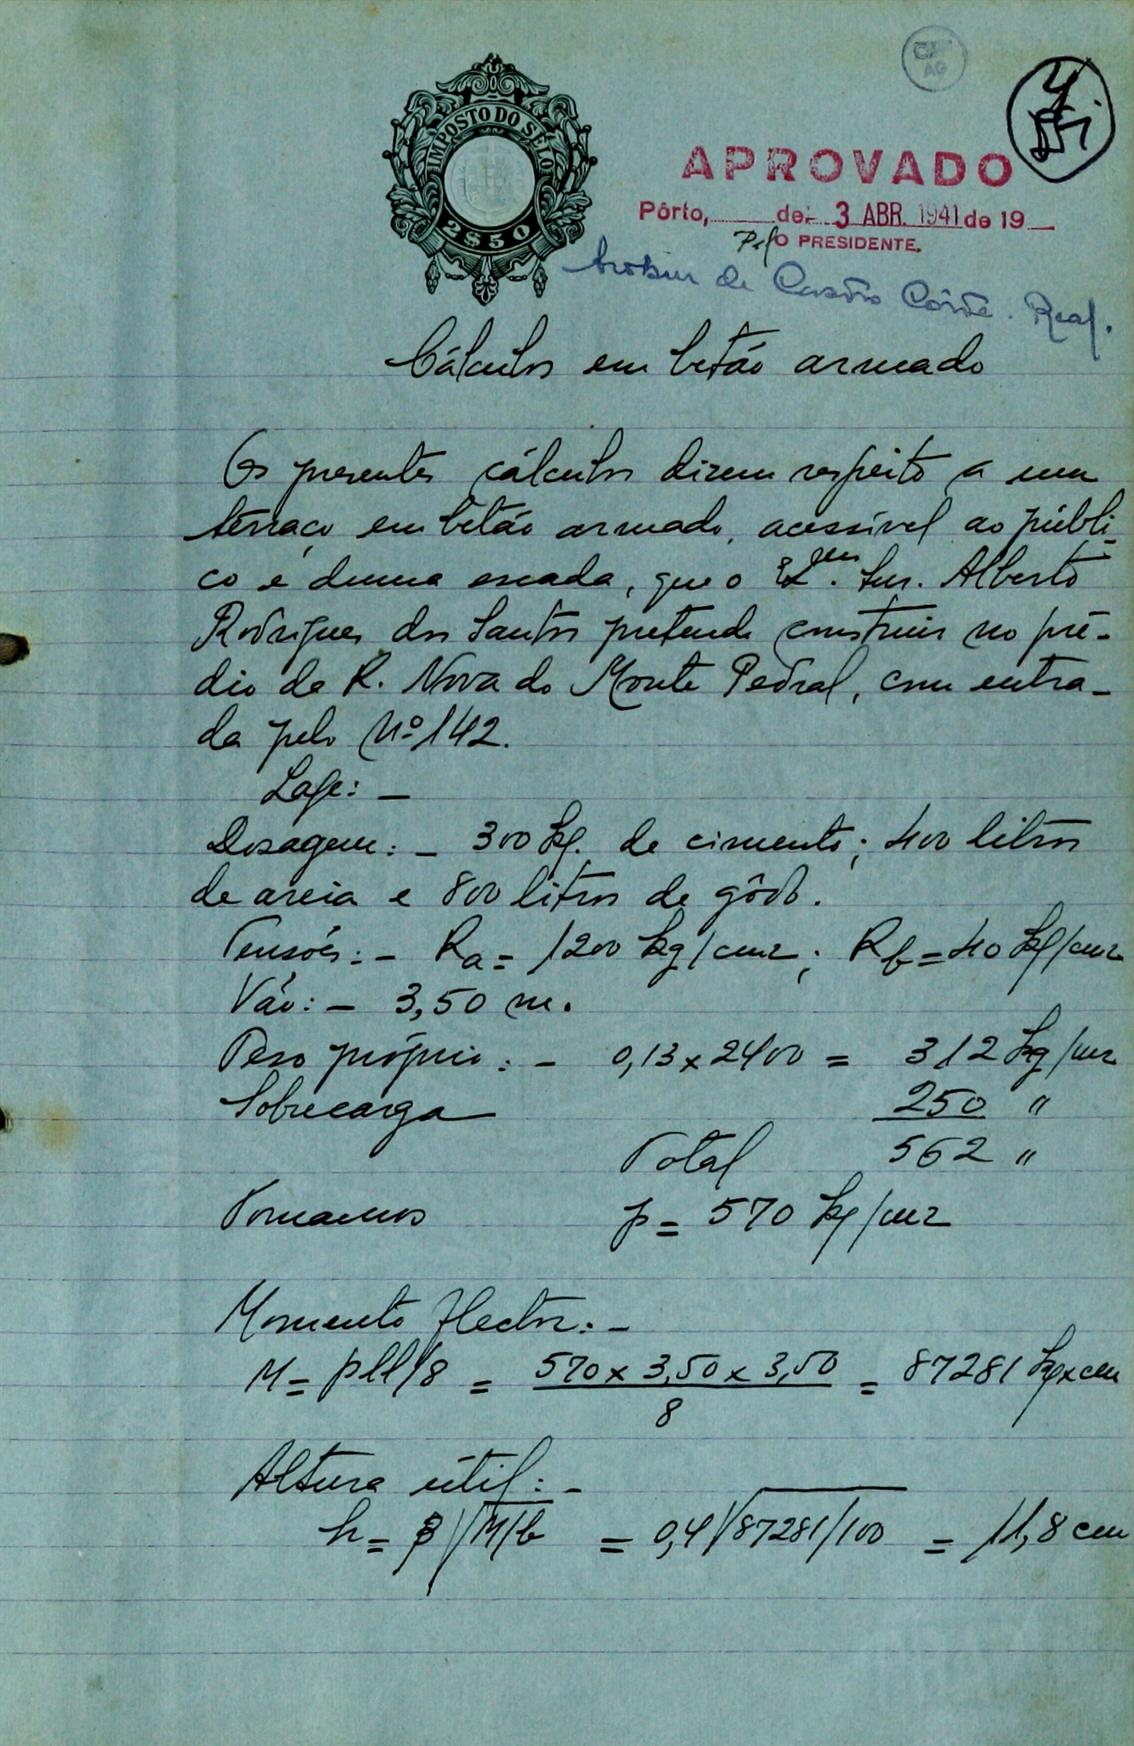 CM
AG
IMPOSTO DO SELO
2$50
APROVADO
Pôrto, de 3 ABR. 1941 de 19
Pel O PRESIDENTE.
de Castro Côrte-Real.
Cálculos em betão armado
Os presentes cálculos dizem respeito a um
terraço em betão armado, acessível ao públi-
co e duma escada, que o Exmo. Snr. Alberto
Rodrigues dos Santos pretende construir no pré-
dio da R. Nova do Monte Pedral, com entra-
da pelo Nº 142.
Laje: —
Dosagem: — 300 kg. de cimento; 400 litros
de areia e 800 litros de gôdo.
Tensões: — Ra = 1200 kg/cm2; Rb = 40 kg/cm2
Vão: — 3,50 m.
Peso próprio: — 0,13 x 2400 = 312 kg/m2
Sobrecarga 250 "
Total 562 "
Tomamos p = 570 kg/m2
Momento flector: —
M = pll/8 = 570 x 3,50 x 3,50 / 8 = 87281 kgxcm
Altura útil: —
h = β √M/b = 0,4 √87281/100 = 11,8 cm